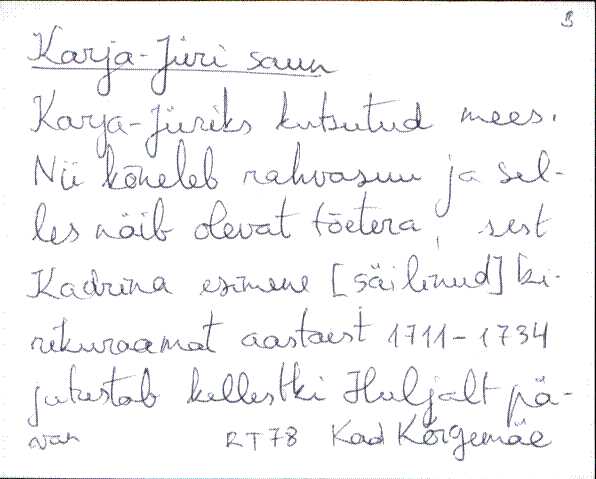 3
Karja-Jüri saun
Karja-Jüriks kutsutud mees.
Nii kõneleb rahvasuu ja sel-
les näib olevat tõetera, sest
Kadrina esimene [säilinud] ki-
rikuraamat aastaist 1711-1734
jutustab kellestki Huljalt pä-
RT78 Kad Kõrgemäe